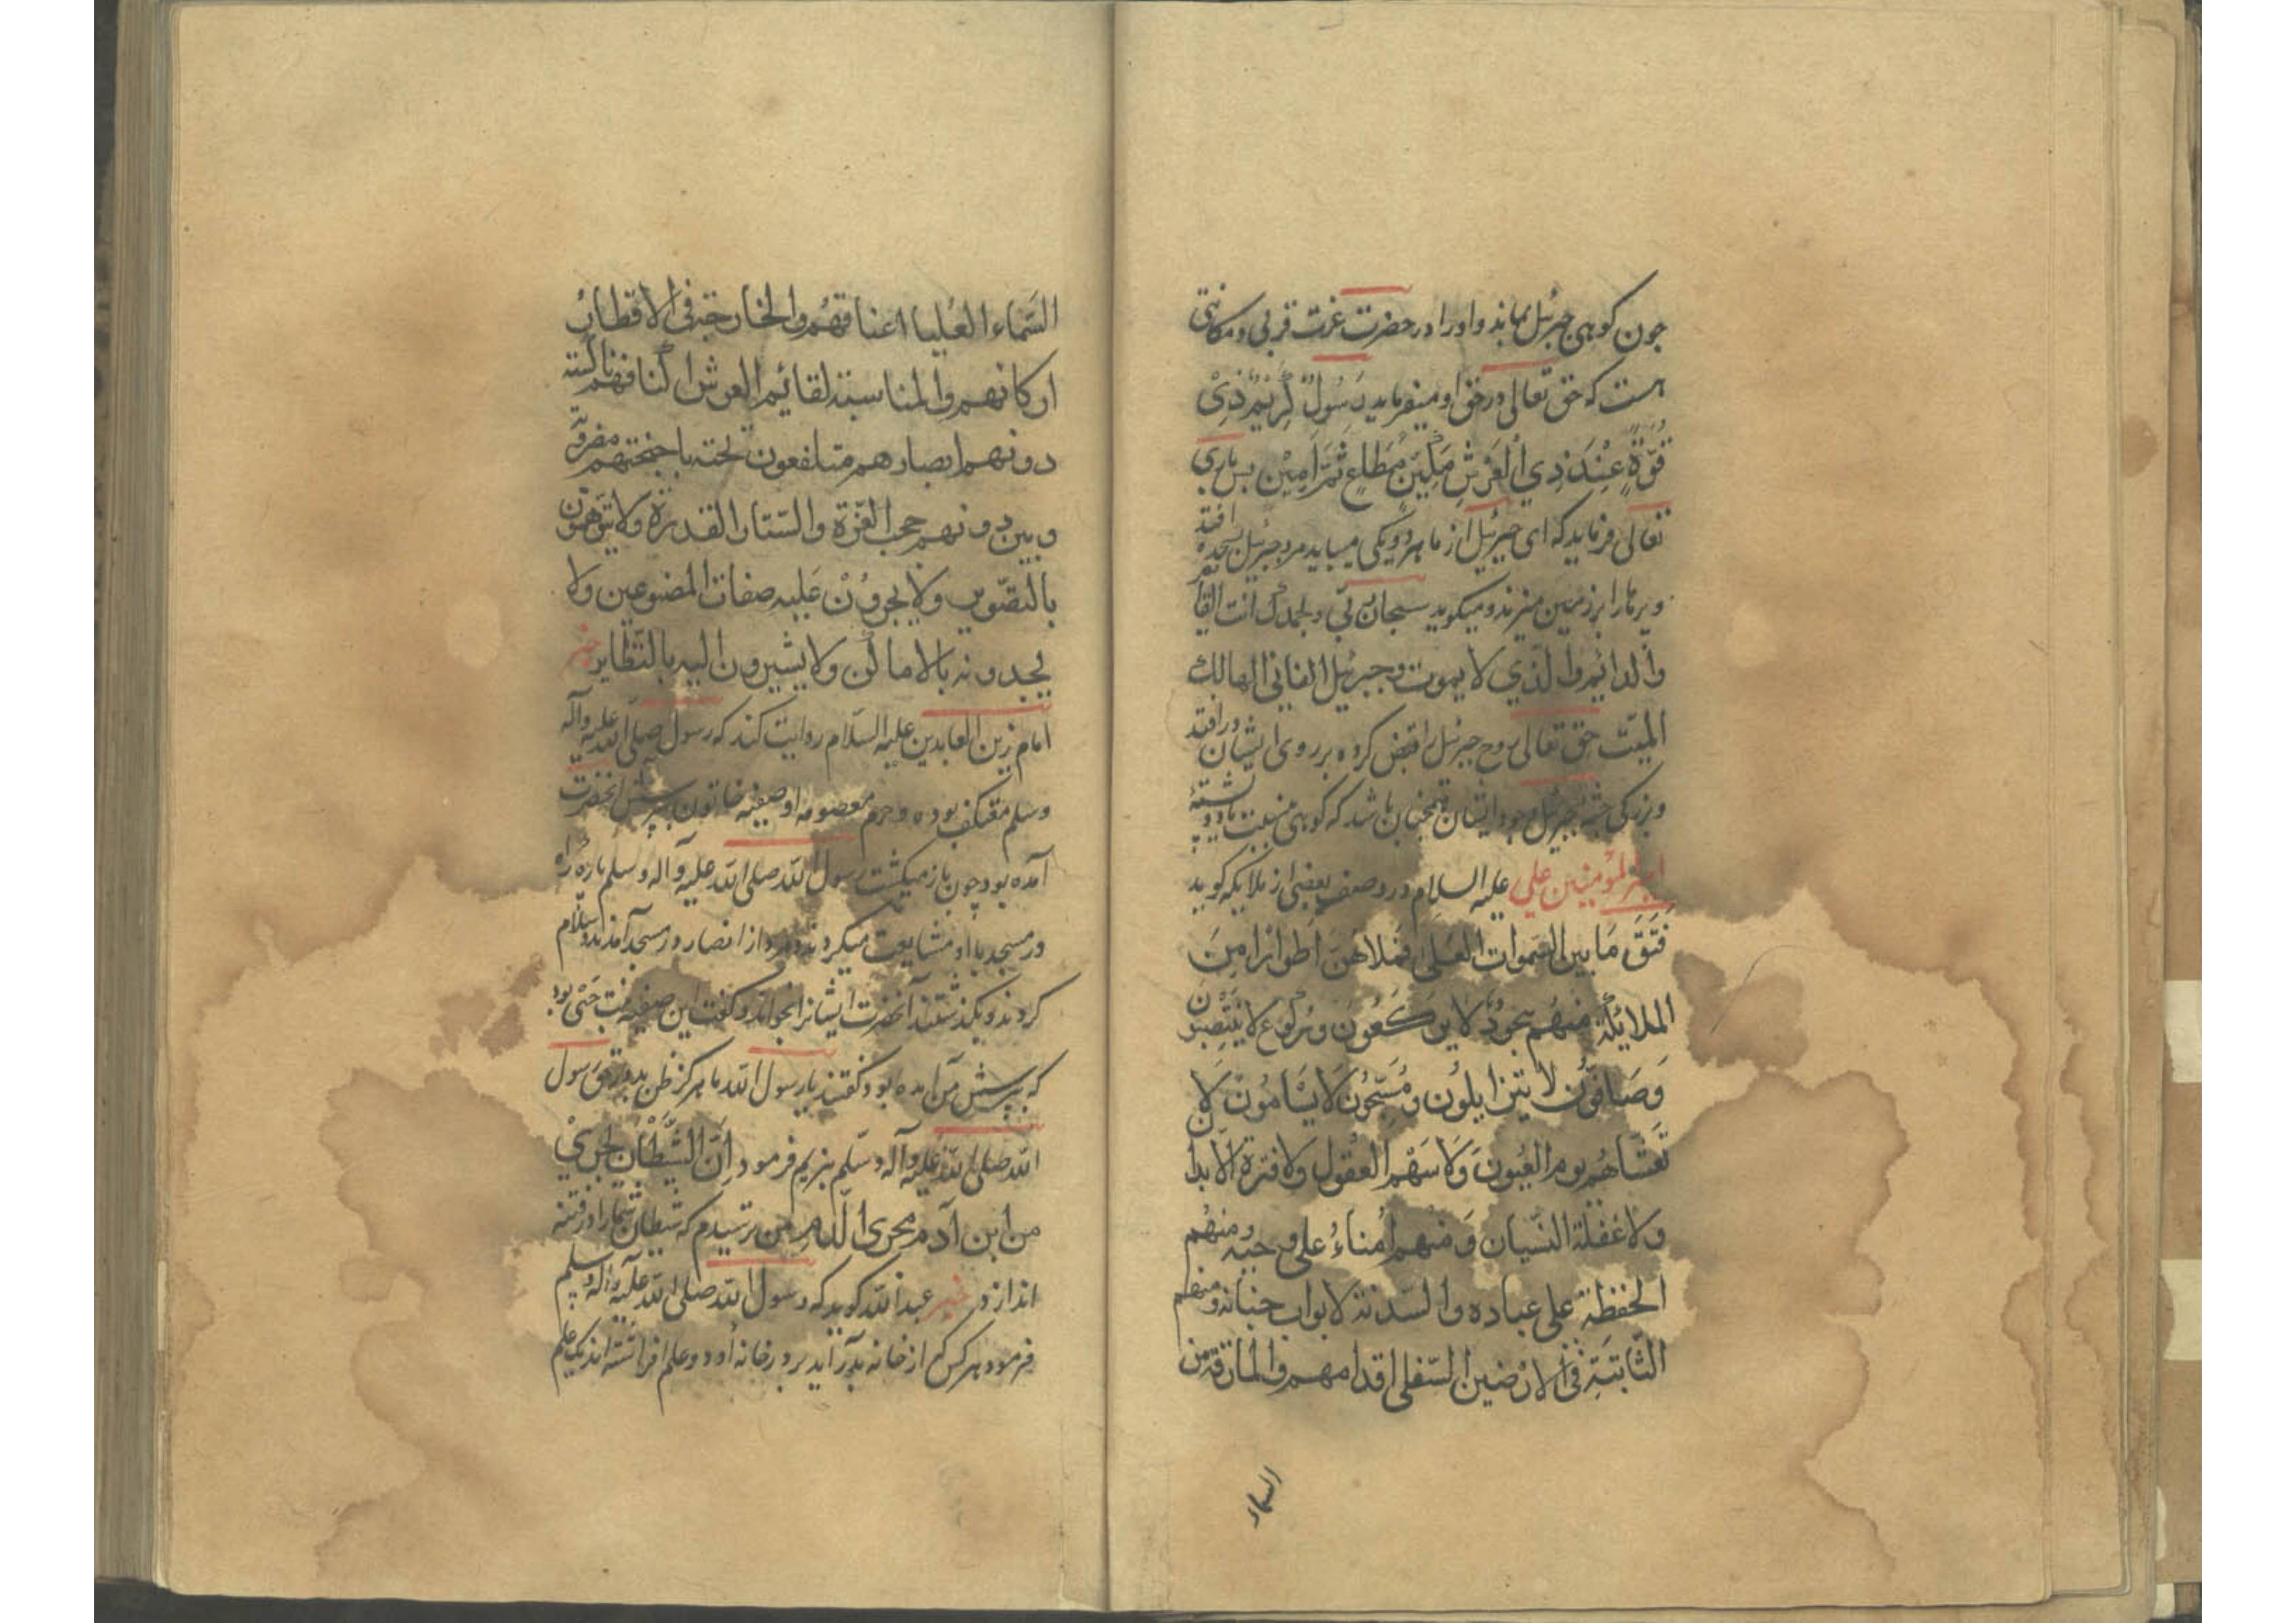 چون کوهی جبرئیل بماند و او را در حضرت عزت قربی و مکانتی
هست که حق تعالی در حق او میفرماید رَسُولٌ کَرِیْمٌ ذِیْ
قُوَّةٍ عِنْدَ ذِي الْعَرْشِ مَکِیْنٍ مُطَاعٍ ثَمَّ اَمِیْنٍ پس باری
تعالی فرماید که ای جبرئیل از ما هر دو یکی میباید مرد جبرئیل بسجده افتد
و پرها را بر زمین میزند و میکوید سبحانک ربی و بحمدک انت القائم
والدائم والذي لا یموت و جبرئیل الفاني الهالك
المیّت حق تعالی روح جبرئیل را قبض کرده بر روی ایشان در افتد
و بزرکی جثه جبرئیل و جود ایشان همچنان باشد که کوهی نسبت با دو پشته
امیر المؤمنین علی علیه السلام در وصف بعضی از ملایکه کوید
فَتَقَ مَا بین السموات العُلی فملاهُنَ اَطوارا مِنَ
الملائکة منهم سجودٌ لا یرکعون و رکوع لا ینتصبون
وَصَافّون لا یتزایلُون و مُسَبّحُون لَا یَسْامُونَ لَا
تغشاهُم نوم العیُون وَلَا سَهْو العقول ولا فترة الابدان
ولا غفلة النّسیان وَ منهم اُمناءُ علی وحیه و منهم
الحفظة علی عباده والسّدنة لابواب جنانه و منهم
الثّابتَةِ في الارضین السّفلی اقدامهم والمارقة من
السماء
السّماء العُلیا اعناقهُم والخارجة في الاقطار
ارکانهم والمناسبة لقائم العرش اکنافهم ناکسة
دونهم ابصارهم متلفعون تحته باجنحتهم مضروبة
و بین دونهم حجب العزّة والستار القدرة ولا یتوهمون
بالتصّویر ولا یجرُونَ عَلیه صفات المصنوعین ولا
یحدونه بالاماکن ولا یشیرون الیه بالنّظایر خبر
امام زین العابدین علیه السّلام روایت کند که رسول صلّی الله علیه وآله
وسلم معتکف بوده و حرم معصومه او صفیه خاتون بپرسش انحضرت
آمده بود چون باز میکشت رسول الله صلی الله علیه وآله وسلم پاره راه
در مسجد با او مشایعت میکرد دو مرد از انصار در مسجد آمدند و سلام
کردند و بکذشتند آنحضرت ایشانرا بخواند و کفت این صفیه بنت حَیّ بود
که بپرسش من آمده بود کفتند یا رسول الله ما هرکز ظن بد در حق رسول
الله صلی الله علیه وآله وسلم نبریم فرمود اِنَّ الشّیطانِ لیجريْ
من ابن آدم مجری الدّم من ترسیدم که شیطان شما را در فتنه
اندازد خبر عبد الله کوید که رسول الله صلی الله علیه وآله وسلم
فرمود هر کس که از خانه بدر آید بر در خانه او دو علم افراشته اند یک علم